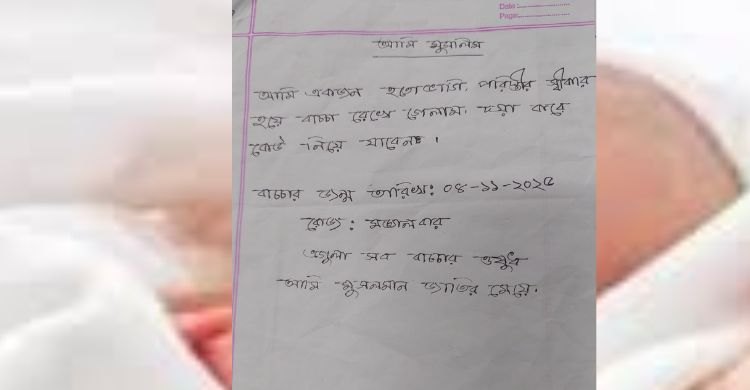 Date :
Page:
আমি মুসলিম
আমি একজন হতোভাগি, পরিস্তীর স্বীকার
হয়ে বাচ্চা রেখে গেলাম, দয়া করে
কেউ নিয়ে যাবেন।
বাচ্চার জন্ম তারিখ: ০৪-১১-২০২৫
রোজ: মঙ্গলবার
এগুলা সব বাচ্চার ওষুধ
আমি মুসলমান জাতির মেয়ে।